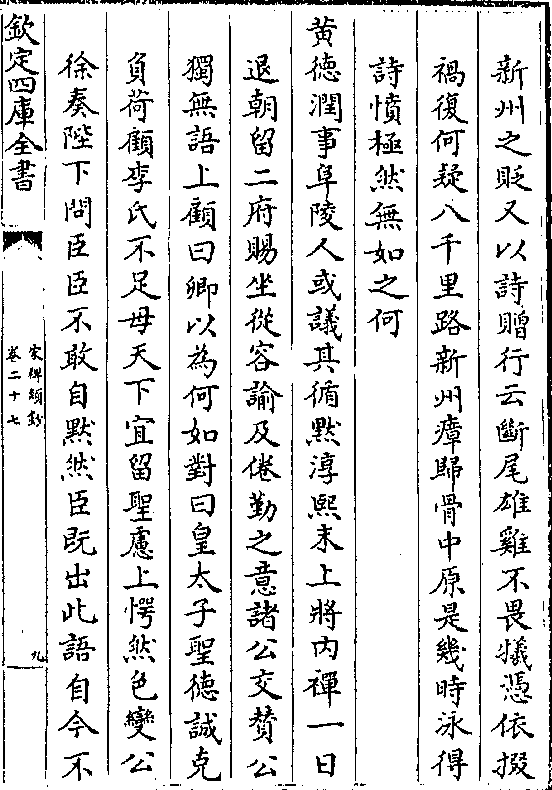 新州之貶又以詩贈行云斷尾雄雞不畏犧憑依掇
禍復何疑八千里路新州瘴歸骨中原是幾時泳得
詩憤極然無如之何
黃德潤事阜陵人或議其循默淳熙末上將内禪一日
退朝留二府賜坐從容諭及倦勤之意諸公交贊公
獨無語上顧曰卿以為何如對曰皇太子聖德誠克
負荷顧李氏不足母天下宜留聖慮上愕然色變公
徐奏陛下問臣臣不敢自默然臣既出此語自今不
欽定四庫全書
宋稗類鈔
卷二十七
九